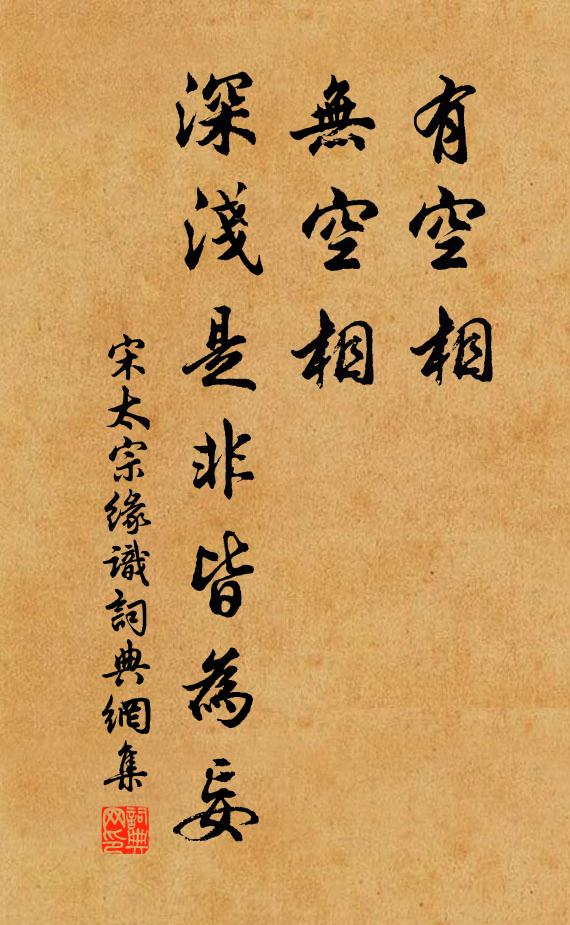 有空相
無空相
深淺是非皆為妄
宋太宗緣識詞典網集
詞典網印